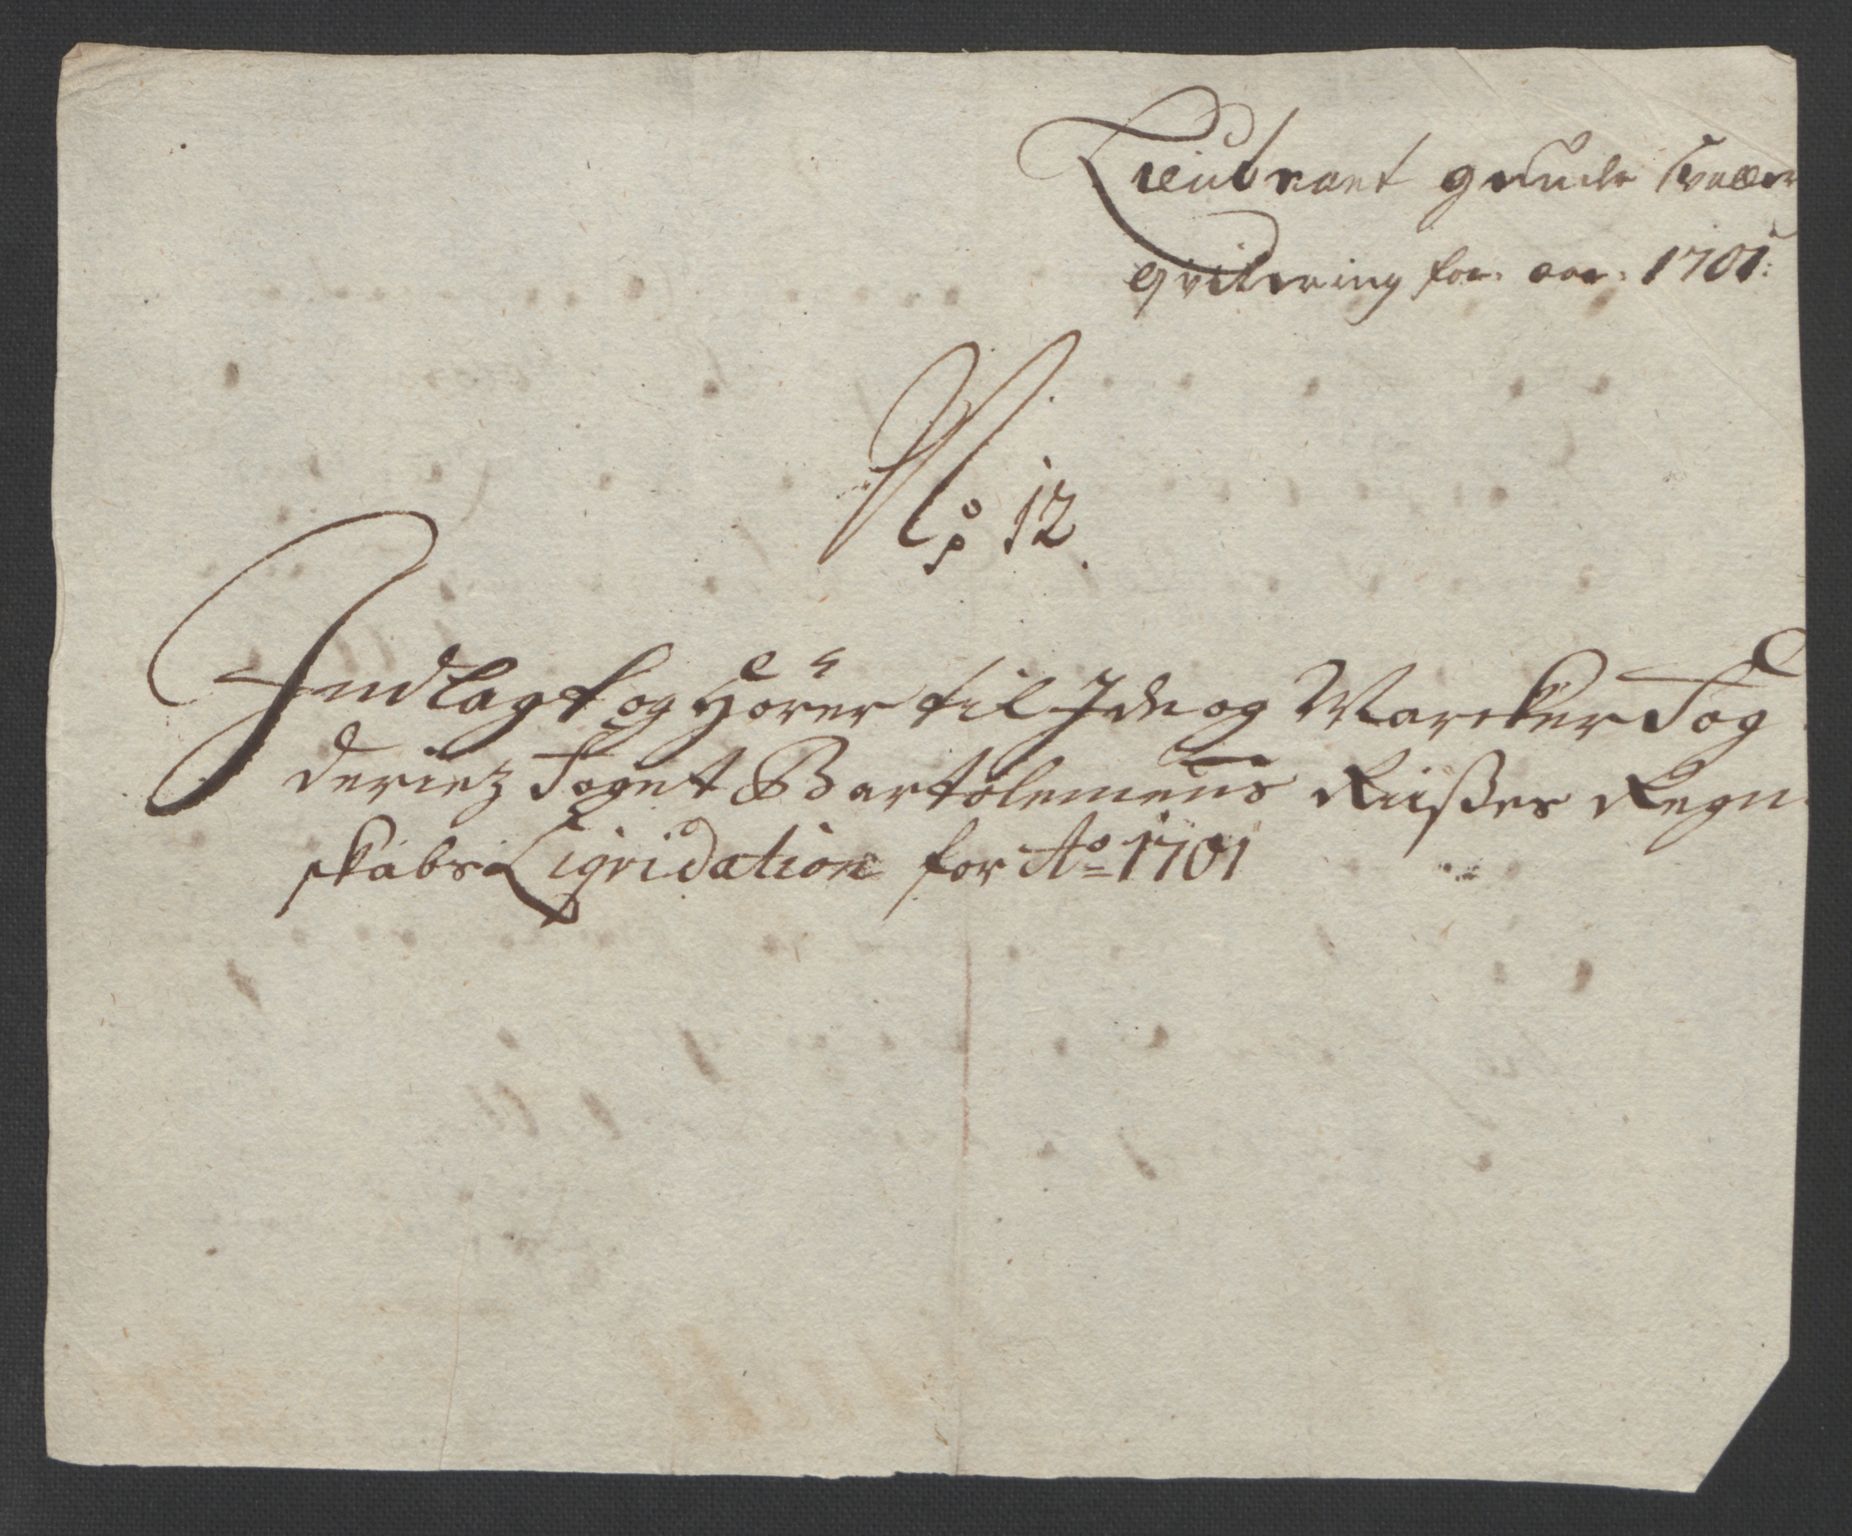 Lieutnant
qvitering for aar: 1701:
No 12
Indlagt og Hörer til Ide og Marcker Fog
deriez Foget Bartolemeus Riißes Regn
skabs Liqvidation for Ao 1701